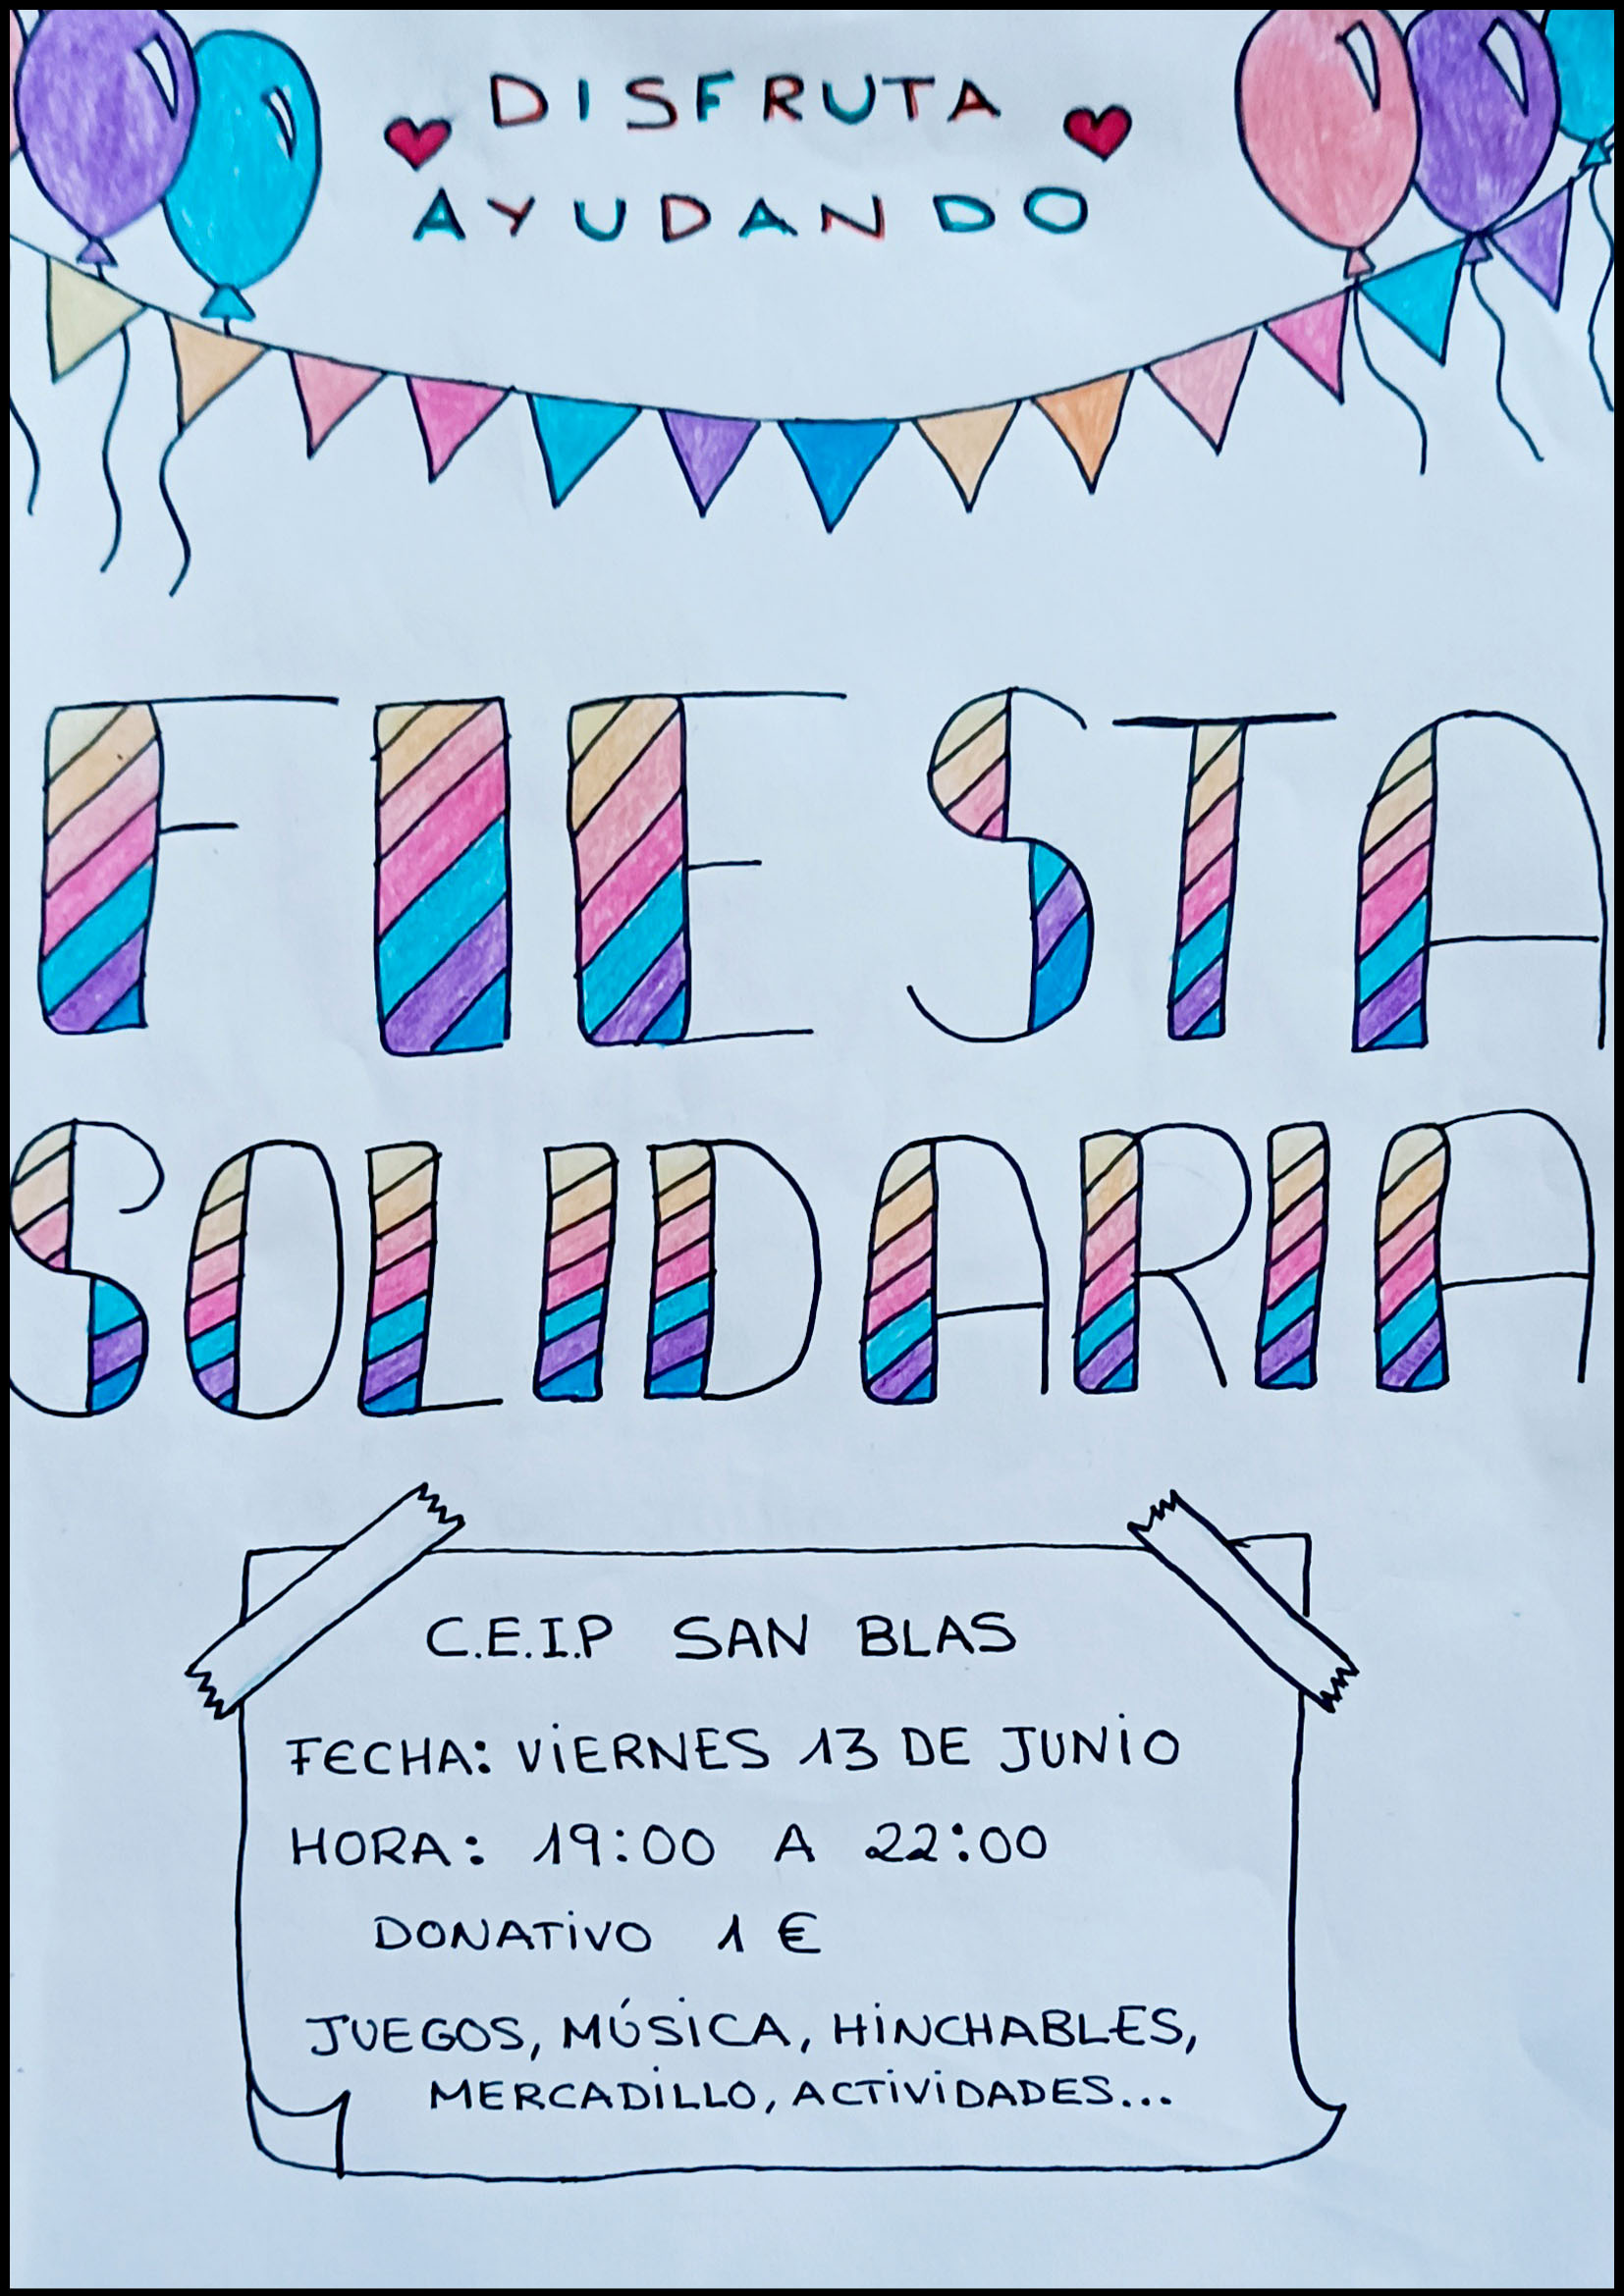 DISFRUTA
AYUDANDO
FIESTA
SOLIDARIA
C.E.I.P SAN BLAS
FECHA: VIERNES 13 DE JUNIO
HORA: 19:00 A 22:00
DONATIVO 1 €
JUEGOS, MÚSICA, HINCHABLES,
MERCADILLO, ACTIVIDADES...